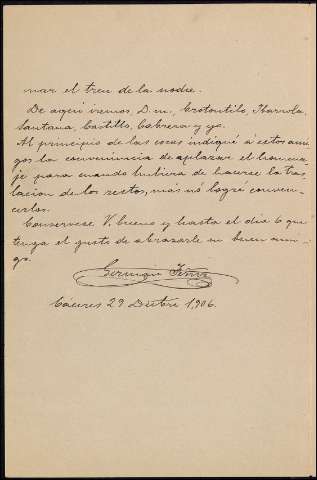 mar el tren de la noche.
De aqui iremos, D. m., Crotontilo, Ibarrola,
Santana, Castillo, Cabrera y yo.
Al principio de las cosas indiqué á estos ami
gos la conveniencia de aplazar el homena
je para cuando hubiera de hacerse la tras
lacion de los restos, más nó logré conven-
cerlos.
Consérvese V. bueno y hasta el dia 6 que
tenga el gusto de abrazarle su buen ami-
go.
German
Cáceres 29 Dictre 1,906.